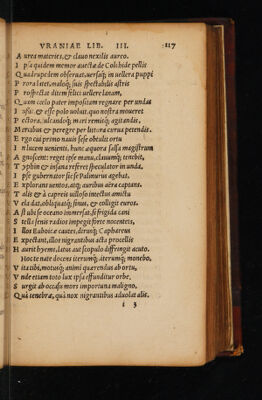 VRANIAE LIB. III. 117
A urea materies, & clauo nexilis aureo.
I psa quidem memor auectæ de Colchide pellis
Q uadrupedem obseruat, uersaq; in uellera puppi
P rora latet, malóq; suis spectabilis astris
P rospectat ditem felici uellere lanam,
Q uam cœlo pater impositam regnare per undas
I ussit, & esse polo uoluit, quo nostra moueret
P ectora, ut lucandoq; mari remisq; agitandis,
M ercibus & peregre per littora carus petendis.
E rgo cui primo nauis sese obtulit ortu
I n lucem uenienti, hunc æquora salsa magistrum
A gnoscent: reget ipse manu, clauumq; tenebit,
T yphin & insana referet speculator in unda.
I pse gubernator sicuti Palinurus agebat,
E xplorans uentos, atq; auribus aëra captans.
T alis & à capreis uillosis intectus amictu
V ela dat, obliquatq; sinus, & colligit euros.
A st ubi se oceano immersat, si frigida cani
S tella senis radios impegit fortè nocentis,
I llos Euboicæ cautes, dirusq; Caphareus
E xpectant, illos nigrantibus acta procellis
H aurit hyems, latus aut scopulo diffringit acuto.
Hoc te nate docens iterumq; iterumq; monebo,
V ita tibi, motusq; animi quærendus ab ortu,
V nde etiam toto lux ipsa effunditur orbe,
S urgit ab occasu mors importuna maligno,
Q uà tenebræ, quà nox nigrantibus aduolat alis.
i 3